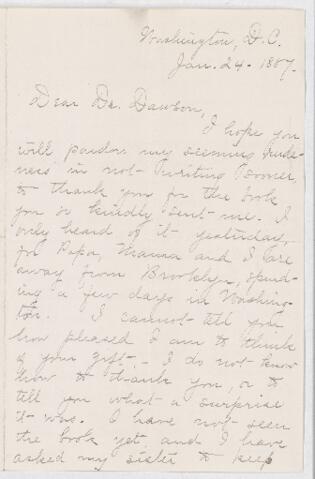 Washington, D.C.
Jan. 24. 1887.
Dear Dr. Dawson,
I hope you
will pardon my seeming rude-
ness in not writing sooner
to thank you for the book
you so kindly sent me. I
only heard of it yesterday,
for Papa, Mamma and I are
away from Brooklyn, spend-
ing a few days in Washing-
ton. I cannot tell you
how pleased I am to think
of your gift. - I do not know
how to thank you, or to
tell you what a surprise
it was. I have not seen
the book yet, and I have
asked my sister to keep